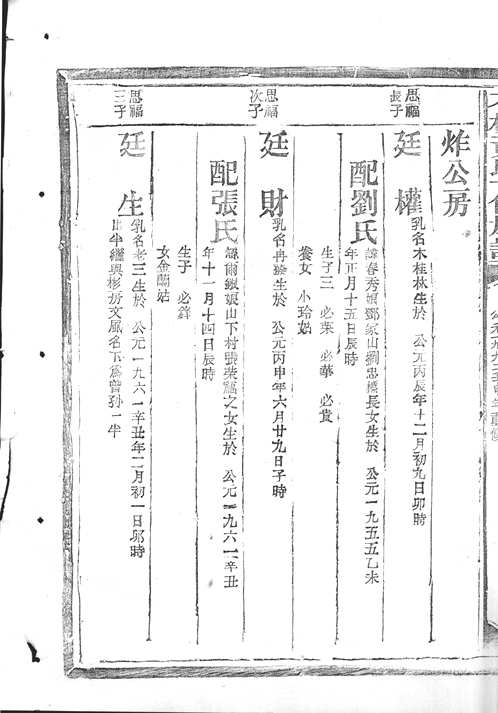 炸公房
思福
長子
廷權
乳名木桂林生於 公元丙辰年十二月初九日卯時
配劉氏
諱春秀娘鄧家山劉忠橋長女生於 公元一九五五乙未
年正月十五日辰時
生子三 必榮 必華 必貴
養女 小玲姑
思福
次子
廷財
乳名冉 生於 公元丙申年六月廿九日子時
配張氏
諱爾銀娘山下村張榮福之女生於 公元一九六一辛丑
年十一月十四日辰時
生子 必鋒
女金蘭姑
思福
三子
廷生
乳名老三生於 公元一九六一辛丑年二月初一日卯時
出半繼與彬房文風名下為曾孫一半